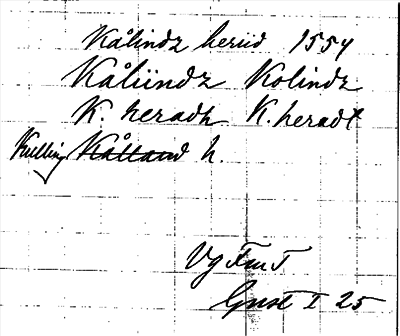 Kålindz heriid 1554
Kåliindz Kolindz
K. heradh K. heradt
Kulling Kålland h.
Vg FmT
Gust I 25